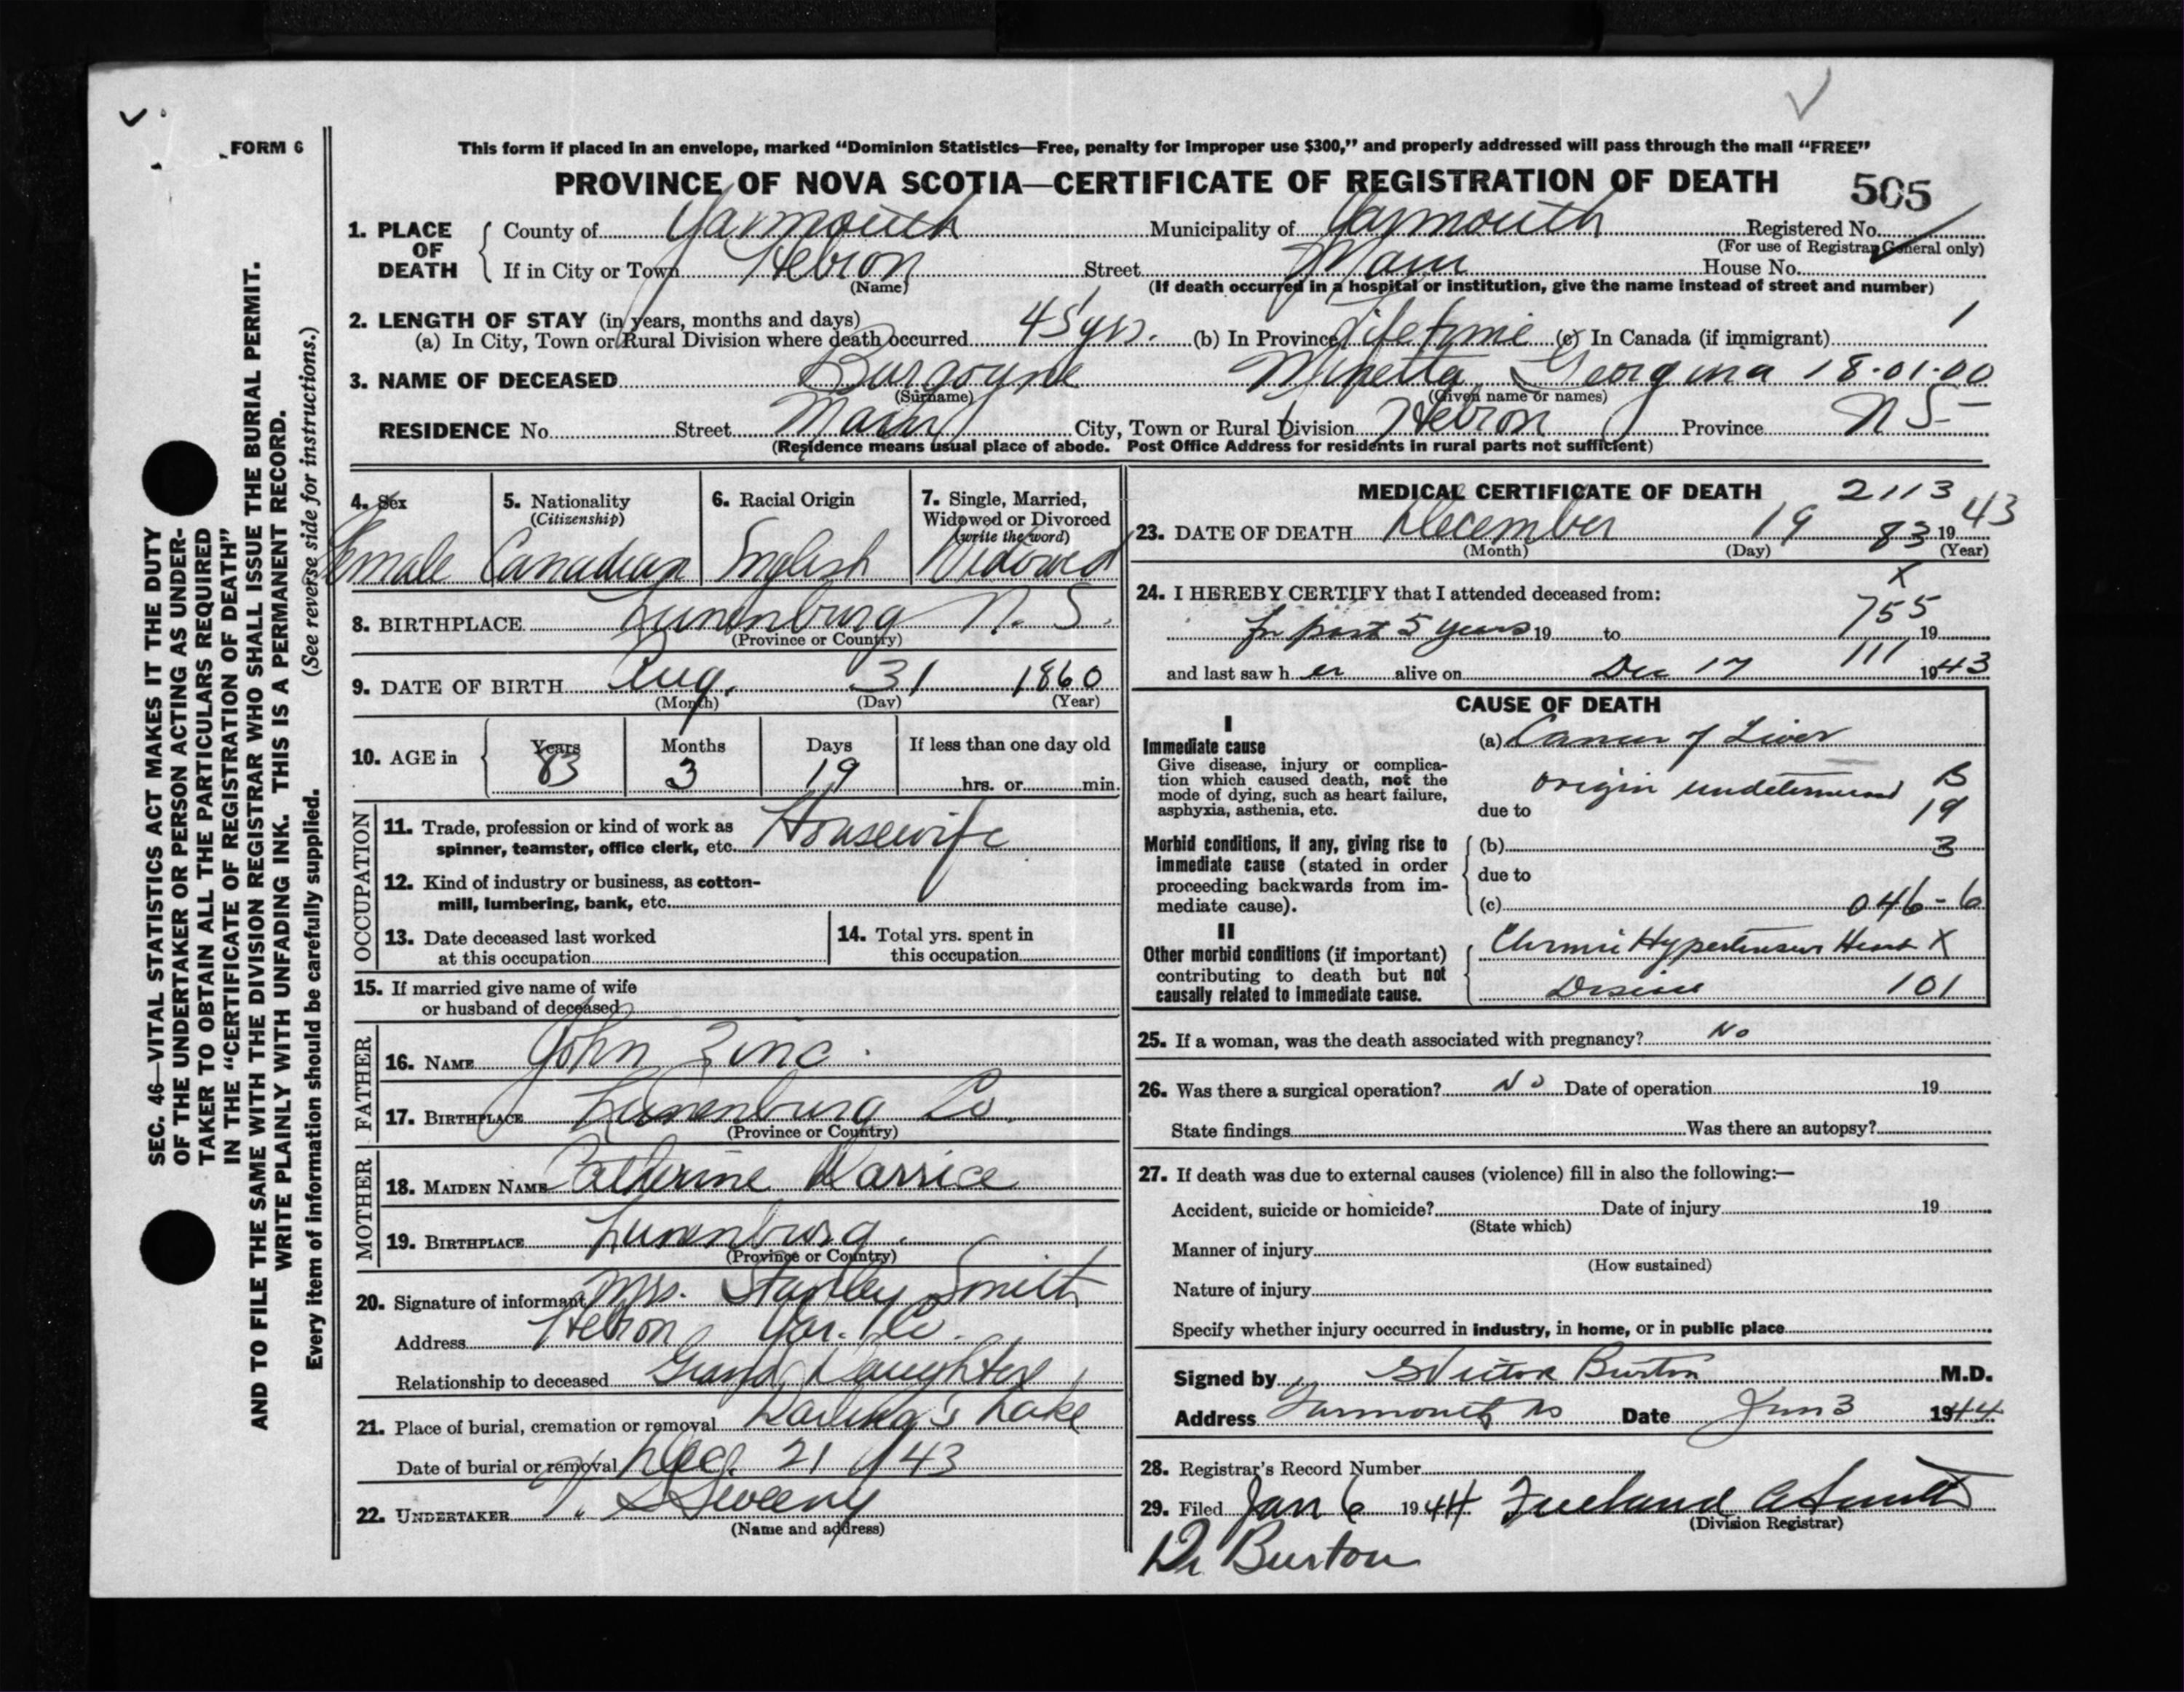 FORM 6
This form if placed in an envelope, marked “Dominion Statistics—Free, penalty for improper use $300,” and properly addressed will pass through the mail “FREE”
PROVINCE OF NOVA SCOTIA—CERTIFICATE OF REGISTRATION OF DEATH 505
1. PLACE OF DEATH County of Yarmouth Municipality of Yarmouth Registered No.
(For use of Registrar General only)
If in City or Town Hebron Street Main House No.
(Name) (If death occurred in a hospital or institution, give the name instead of street and number)
2. LENGTH OF STAY (in years, months and days)
(a) In City, Town or Rural Division where death occurred 45 yrs. (b) In Province Lifetime (c) In Canada (if immigrant) 1
3. NAME OF DECEASED Burgoyne Minetta Georgina 18.01.00
(Surname) (Given name or names)
RESIDENCE No. Street Main City, Town or Rural Division Hebron Province N S
(Residence means usual place of abode. Post Office Address for residents in rural parts not sufficient)
4. Sex Female
5. Nationality (Citizenship) Canadian
6. Racial Origin English
7. Single, Married, Widowed or Divorced (write the word) Widowed
8. BIRTHPLACE Lunenburg N. S.
(Province or Country)
9. DATE OF BIRTH Aug. 31 1860
(Month) (Day) (Year)
10. AGE in Years 83 Months 3 Days 19 If less than one day old
hrs. or min.
OCCUPATION
11. Trade, profession or kind of work as
spinner, teamster, office clerk, etc. Housewife
12. Kind of industry or business, as cotton-
mill, lumbering, bank, etc.
13. Date deceased last worked
at this occupation
14. Total yrs. spent in
this occupation
15. If married give name of wife
or husband of deceased
FATHER
16. NAME John Zinc
17. BIRTHPLACE Lunenburg Co.
(Province or Country)
MOTHER
18. MAIDEN NAME Catherine
19. BIRTHPLACE Lunenburg.
(Province or Country)
20. Signature of informant Mrs. Stanley Smith
Address Hebron Yar. Co.
Relationship to deceased Grand Daughter
21. Place of burial, cremation or removal Darling's Lake
Date of burial or removal Dec. 21 / 43
22. UNDERTAKER V. S Sweeny
(Name and address)
MEDICAL CERTIFICATE OF DEATH 2113
23. DATE OF DEATH December 19 83 19 43
(Month) (Day) (Year)
X
24. I HEREBY CERTIFY that I attended deceased from:
755
For past 5 years 19 to 19
111
and last saw h er alive on Dec 17 1943
CAUSE OF DEATH
I
Immediate cause
Give disease, injury or complica-
tion which caused death, not the
mode of dying, such as heart failure,
asphyxia, asthenia, etc.
(a) Cancer of Liver
origin undetermined B
due to 19
Morbid conditions, if any, giving rise to
immediate cause (stated in order
proceeding backwards from im-
mediate cause).
(b) 3
due to
(c) 046-6
II
Other morbid conditions (if important)
contributing to death but not
causally related to immediate cause.
Chronic Hypertensive Heart X
Disease 101
25. If a woman, was the death associated with pregnancy? No
26. Was there a surgical operation? No Date of operation 19
State findings Was there an autopsy?
27. If death was due to external causes (violence) fill in also the following:—
Accident, suicide or homicide? Date of injury 19
(State which)
Manner of injury
(How sustained)
Nature of injury
Specify whether injury occurred in industry, in home, or in public place
Signed by Victor Burton M.D.
Address Yarmouth NS Date Jan 3 1944
28. Registrar's Record Number
29. Filed Jan 6 1944 Freeland A Smith
(Division Registrar)
Dr Burton
SEC. 46—VITAL STATISTICS ACT MAKES IT THE DUTY
OF THE UNDERTAKER OR PERSON ACTING AS UNDER-
TAKER TO OBTAIN ALL THE PARTICULARS REQUIRED
IN THE “CERTIFICATE OF REGISTRATION OF DEATH”
AND TO FILE THE SAME WITH THE DIVISION REGISTRAR WHO SHALL ISSUE THE BURIAL PERMIT.
WRITE PLAINLY WITH UNFADING INK. THIS IS A PERMANENT RECORD.
Every item of information should be carefully supplied. (See reverse side for instructions.)